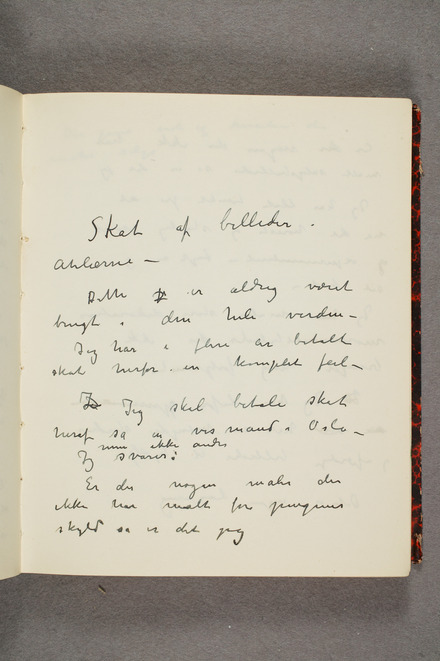 Skat af billeder.
Atelierne —
Dette er aldrig været
brugt i den hele verden —
Jeg har i flere år betalt
skat herfor. en komplet feil —
Jeg skal betale skat
heraf sa en vis mand i Oslo —
men ikke andre
Jg svarer:
Er der nogen maler der
ikke har malt for pengenes
skyld så er det jeg